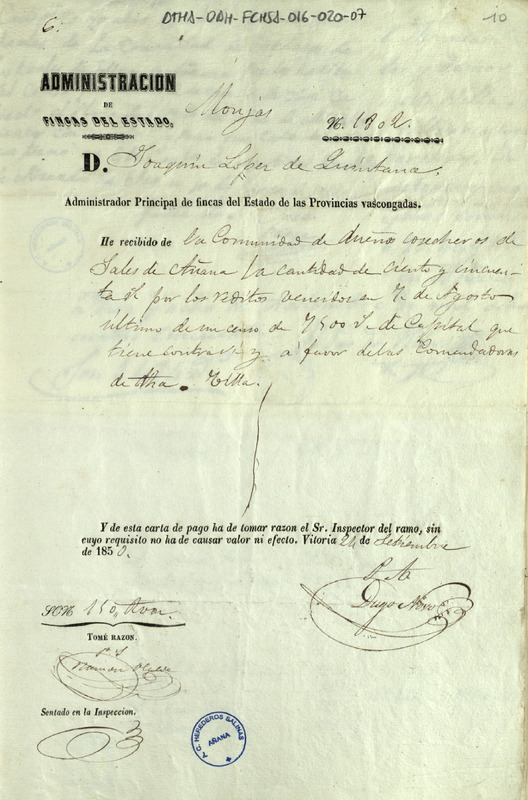 6.
DTHA-DAH-FCHSA-016-020-07
10
ADMINISTRACION
DE
FINCAS DEL ESTADO.
Monjas
N. 1802.
D. Joaquin López de Quintana.
Administrador Principal de fincas del Estado de las Provincias vascongadas.
He recibido de la Comunidad de dueños cosecheros de
Sales de Añana la cantidad de ciento y cincuen-
ta por los réditos vencidos en 7 de Agosto
último de un censo de 7500 de Capital que
tiene contra sí y a favor de las Comendadoras
de dha. Villa.
Y de esta carta de pago ha de tomar razon el Sr. Inspector del ramo, sin
cuyo requisito no ha de causar valor ni efecto. Vitoria 24 de Setiembre
de 1850.
P. A.
Diego Novo
SON 150,
TOMÉ RAZON.
Ramon
Sentado en la Inspeccion.
C. HEREDEROS SALINAS
AÑANA